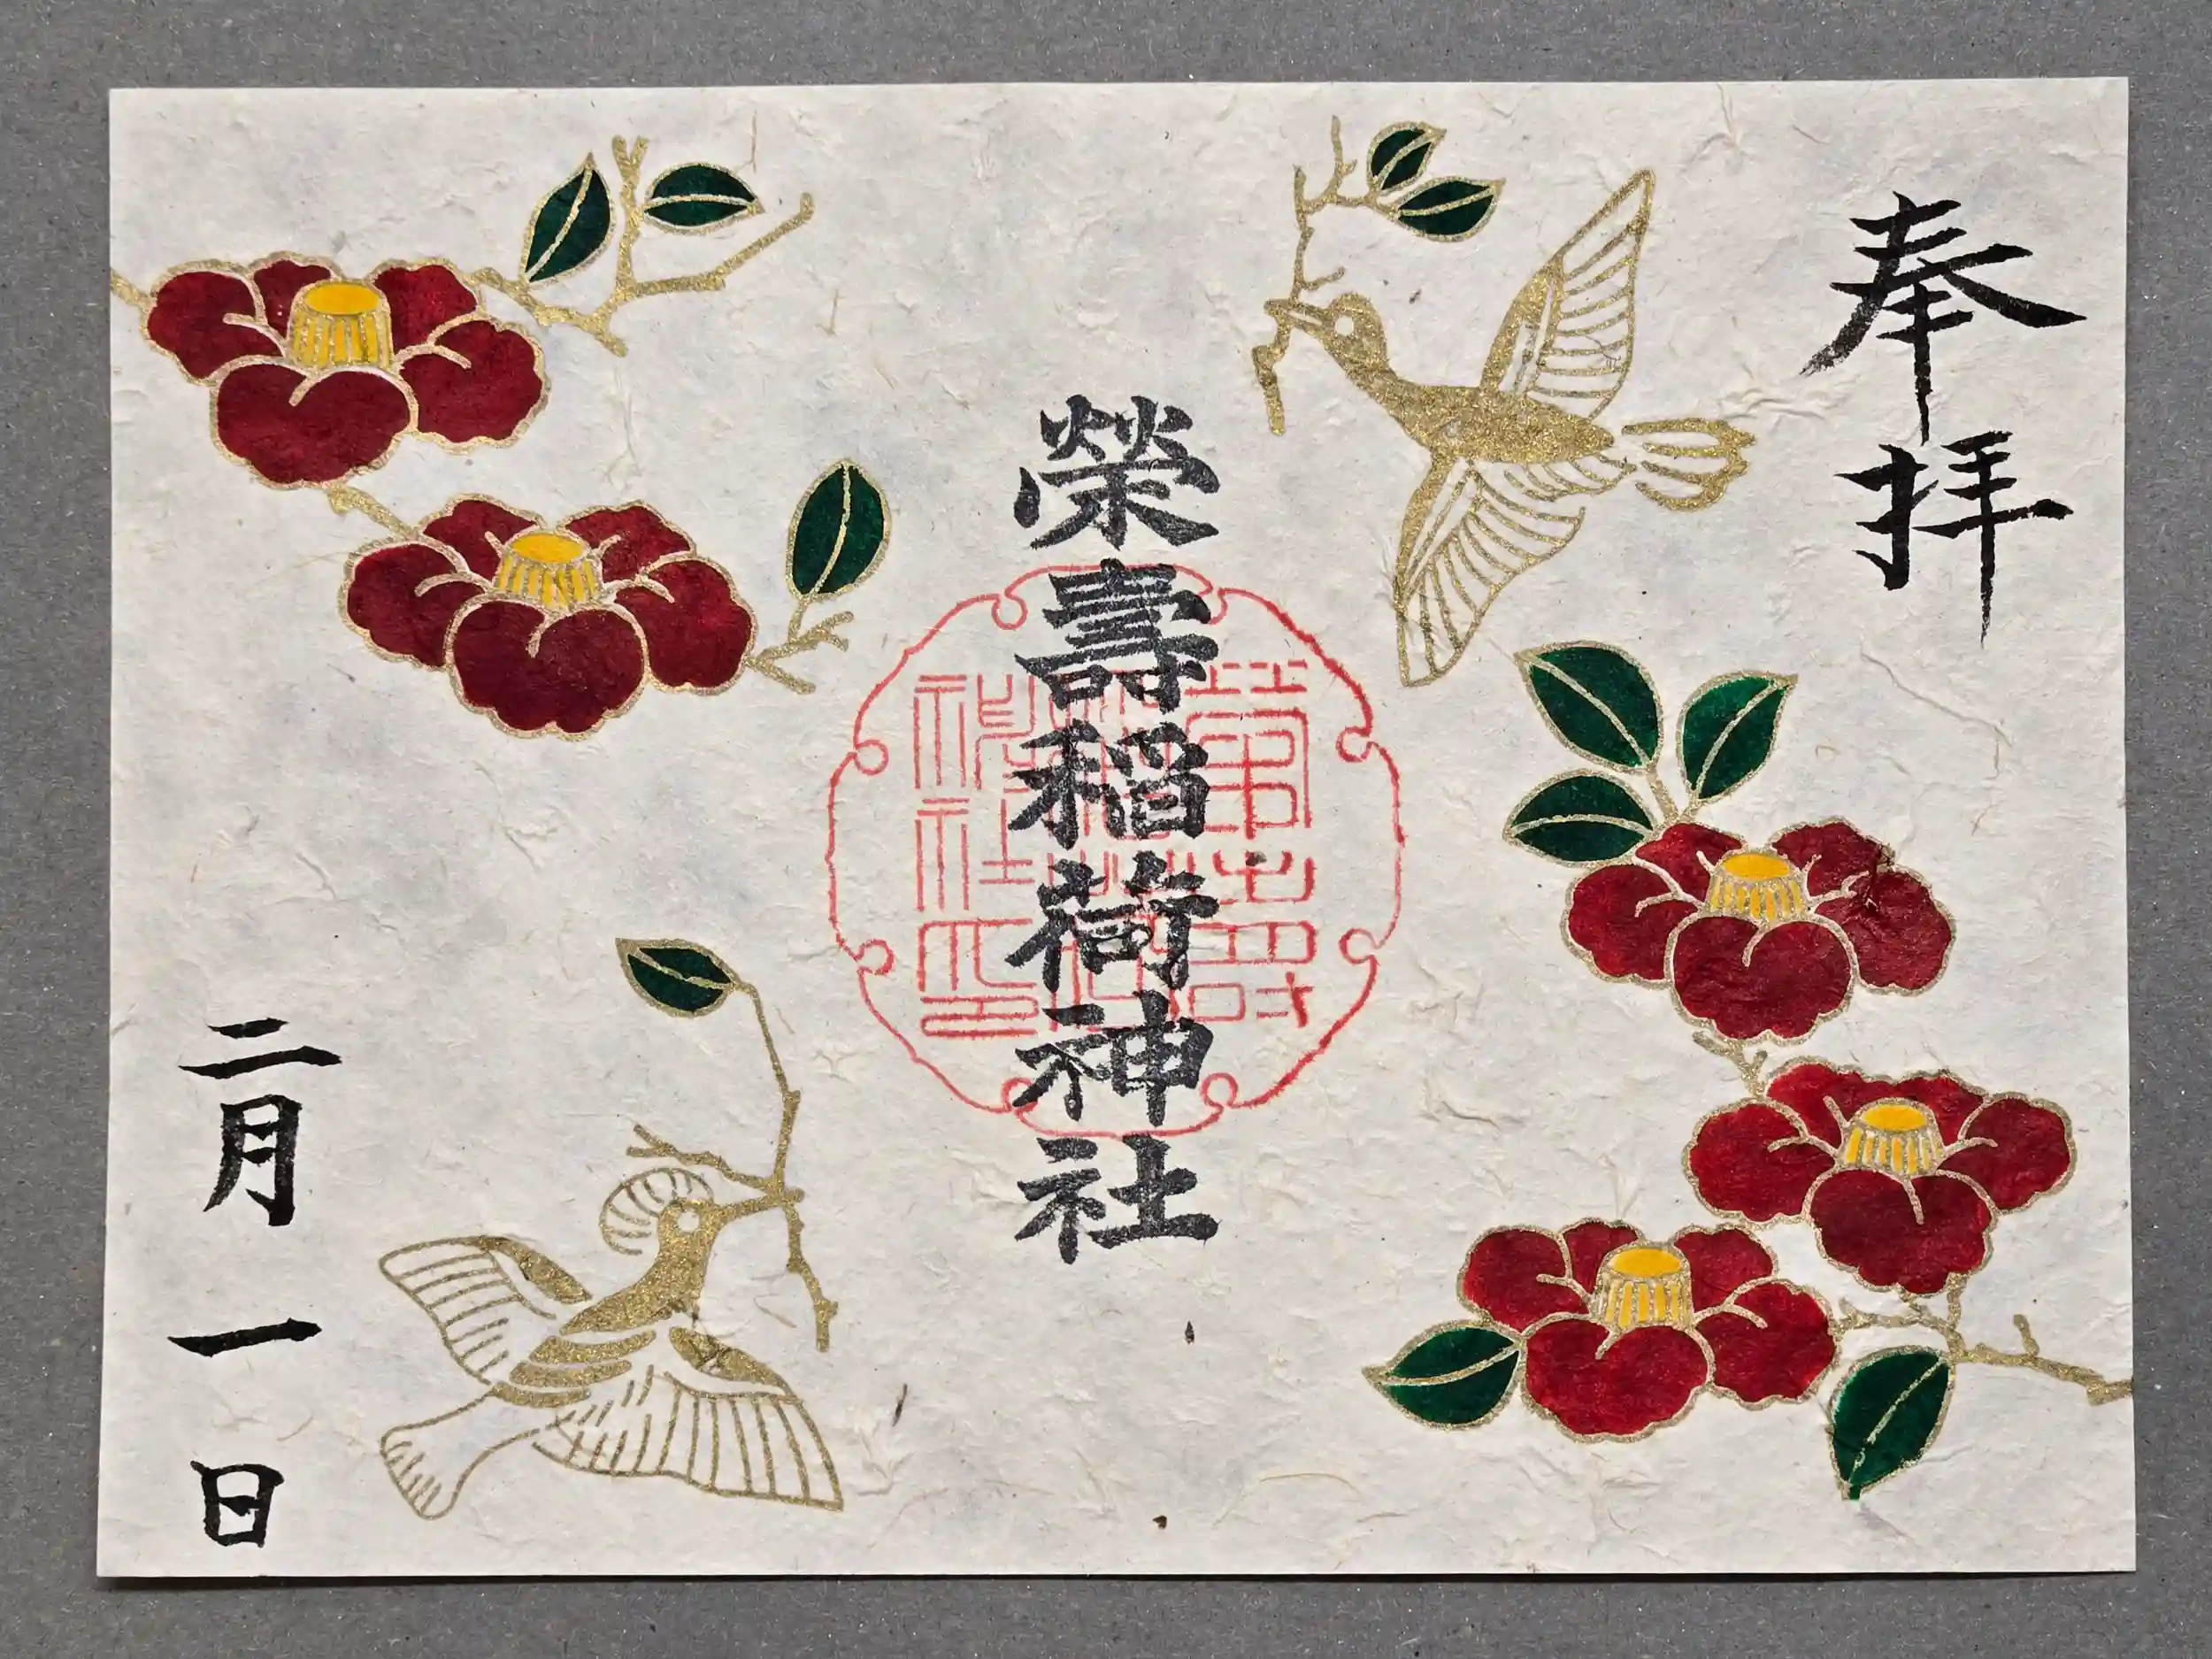 奉拝
榮壽稲荷神社
二月一日